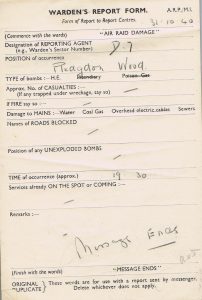 WARDEN'S REPORT FORM. A.R.P./M.I.
Form of Report to Report Centres.
31-10-40
(Commence with the words) "AIR RAID DAMAGE"
Designation of REPORTING AGENT D.7
(e.g., Warden's Sector Number)
POSITION of OCCURRENCE
Wood.
TYPE of bombs:- H.E. Incendiary Poison Gas
Approx. No. of CASUALTIES:-
(If any trapped under wreckage, say so)
If FIRE say so:-
Damage to MAINS:- Water Coal Gas Overhead electric cables Sewers
Names of ROADS BLOCKED
Position of any UNEXPLODED BOMBS
TIME of occurrence (approx.) 19 30
Services already ON THE SPOT or COMING:-
Remarks:-
Message Ends
(Finish with the words) "MESSAGE ENDS"
ORIGINAL These words are for use with a report sent by messenger.
DUPLICATE Delete whichever does not apply.